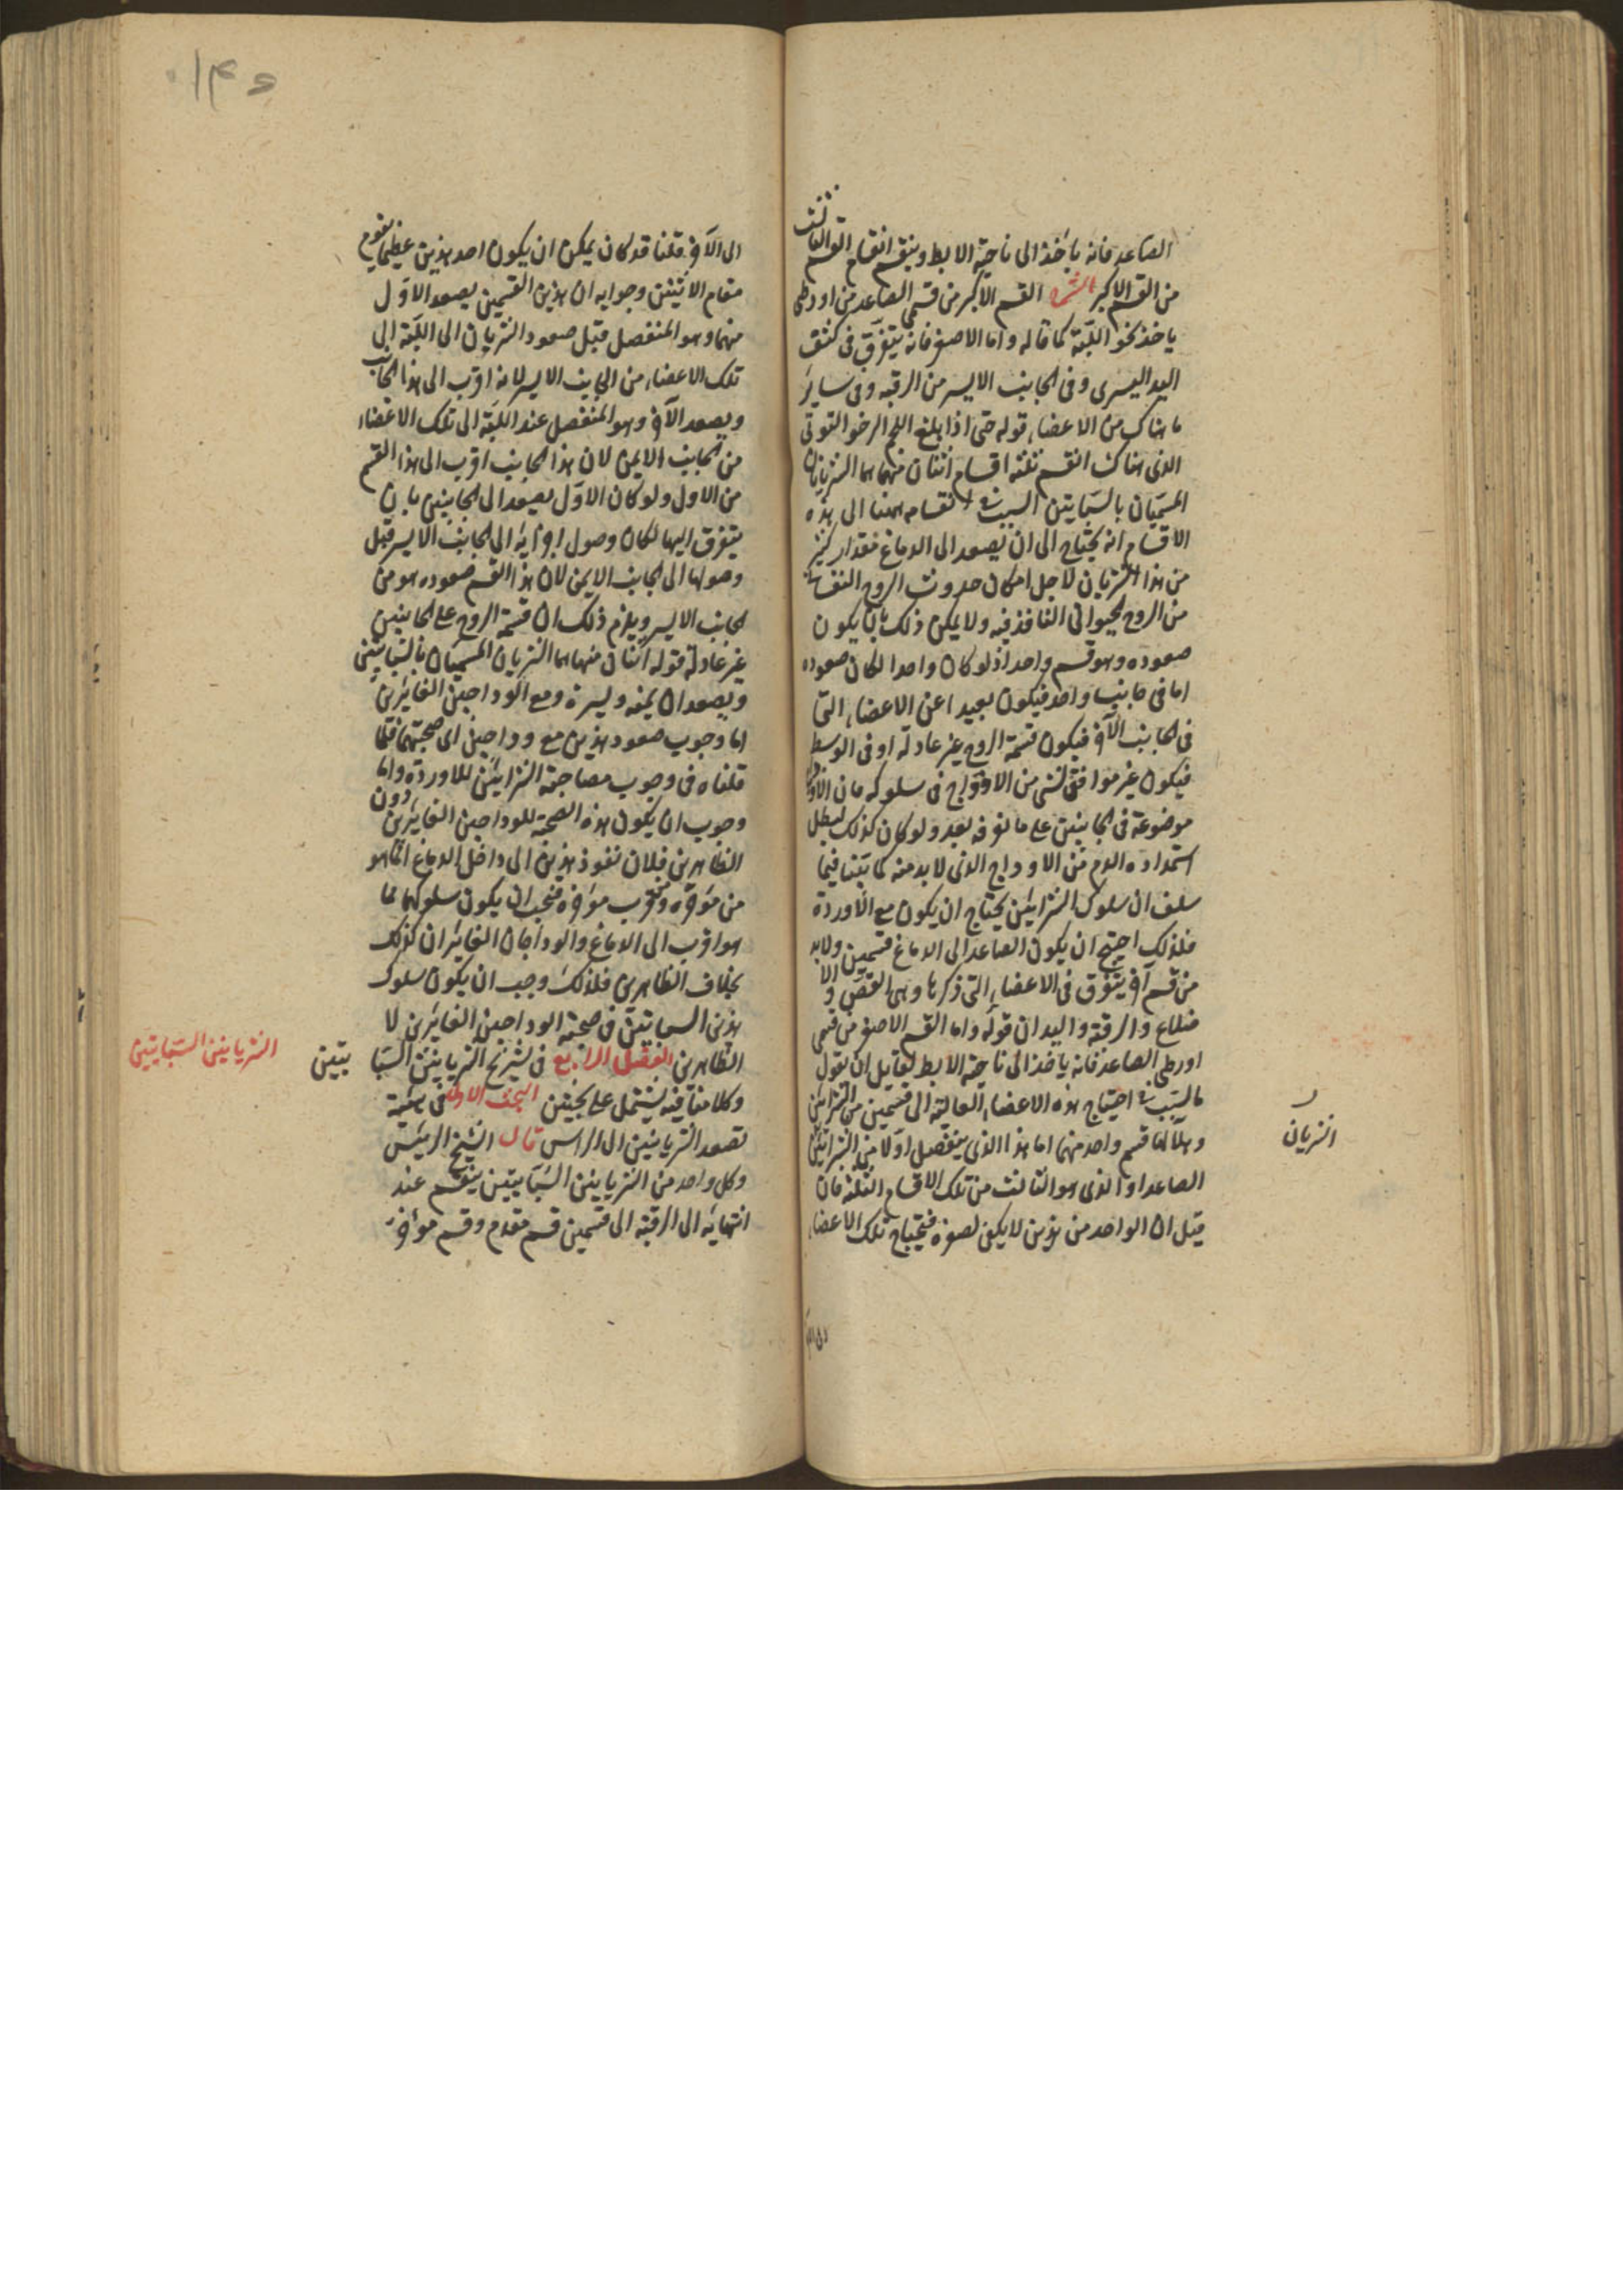 الصاعد فانه ياخذ الى ناحية الابط وينقسم انقسام القسم الثالث
من القسم الاكبر الشرح القسم الاكبر من قسمي الصاعد من اورطى
ياخذ نحو اللبة كما قاله واما الاصغر فانه يتفرق فى كتف
اليد اليسرى وفى الجانب الايسر من الرقبه وفى ساير
ما هناك من الاعضاء قوله حتى اذا بلغ اللحم الرخو التوتى
الذى هناك انقسم ثلثه اقسام اثنان منهما هما الشريانان
المسميان بالسباتيين السبب فى انقسامه ههنا الى هذه
الاقسام انه يحتاج الى ان يصعد الى الدماغ مقدار كثير
من هذا الشريان لاجل امكان حدوث الروح النفسانى
من الروح الحيوانى النافذ فيه ولا يمكن ذلك بان يكون
صعوده وهو قسم واحد اذ لو كان واحدا لكان صعوده
اما فى جانب واحد فيكون بعيدا عن الاعضاء التى
فى الجانب الآخر فيكون قسمة الروح غير عادلة او فى الوسط
فيكون غير موافق لشئ من الاوداج فى سلوكه فان الاوداج
موضوعة فى الجانبين على ما نعرفه بعد ولو كان كذلك لبطل
استمداده الدم من الاوداج الذى لا بد منه كما بينا فيما
سلف ان سلوك الشرايين يحتاج ان يكون مع الاوردة
فلذلك احتيج ان يكون الصاعد الى الدماغ قسمين ولا بد
من قسم آخر يتفرق فى الاعضاء التى ذكرها وهى القص والا
ضلاع والرقبة واليدان قوله واما القسم الاصغر من قسمى
اورطى الصاعد فانه ياخذ الى ناحية الابط لقايل ان يقول
ما السبب فى احتياج هذه الاعضاء العالية الى قسمين من الشرايين
وهلا لها قسم واحد منهما اما هذا الذى ينفصل اولا من الشرايين
الصاعد او الذى هو الثالث من تلك الاقسام الثلثة فان
قيل ان الواحد من هذين لا يكفى لصغره فيحتاج تلك الاعضاء
الشريان
الى الآخر قلنا قد كان يمكن ان يكون احد هذين عظيما يقوم
مقام الاثنين وجوابه ان هذين القسمين يصعد الاول
منهما وهو المنفصل قبل صعود الشريان الى اللبة الى
تلك الاعضاء من الجانب الايسر لانه اقرب الى هذا الجانب
ويصعد الآخر وهو المنفصل عند اللبة الى تلك الاعضاء
من الجانب الايمن لان هذا الجانب اقرب الى هذا القسم
من الاول ولو كان الاول يصعد الى الجانبين بان
يتفرق اليها لكان وصول اجزايه الى الجانب الايسر قبل
وصولها الى الجانب الايمن لان هذا القسم صعوده هو من
الجانب الايسر ويلزم ذلك ان قسمة الروح على الجانبين
غير عادلة قوله اثنان منهما هما الشريان المسميان بالسباتيين
ويصعدان يمنه ويسرة ومع الوداجين الغايرين
اما وجوب صعود هذين مع وداجين اى صحبتهما فلما
قلناه فى وجوب مصاحبة الشرايين للاوردة واما
وجوب ان يكون هذه الصحبة للوداجين الغايرين دون
الظاهرين فلان نفوذ هذين الى داخل الدماغ انما هو
من مؤخره وبقرب مؤخره فيجب ان يكون سلوكهما مما
هو اقرب الى الدماغ والوداجان الغايران كذلك
بخلاف الظاهرين فلذلك وجب ان يكون سلوك
هذين السباتيين فى صحبة الوداجين الغايرين لا
الظاهرين الفصل الرابع فى تشريح الشريانين السبا تيين
الشريانين السباتيين
وكلامنا فيه يشتمل على بحثين البحث الاول فى هيئة
تصعد الشريانين الى الراس قال الشيخ الرئيس
وكل واحد من الشريانين السباتيين ينقسم عند
انتهايه الى الرقبة الى قسمين قسم مقدم وقسم مؤخر